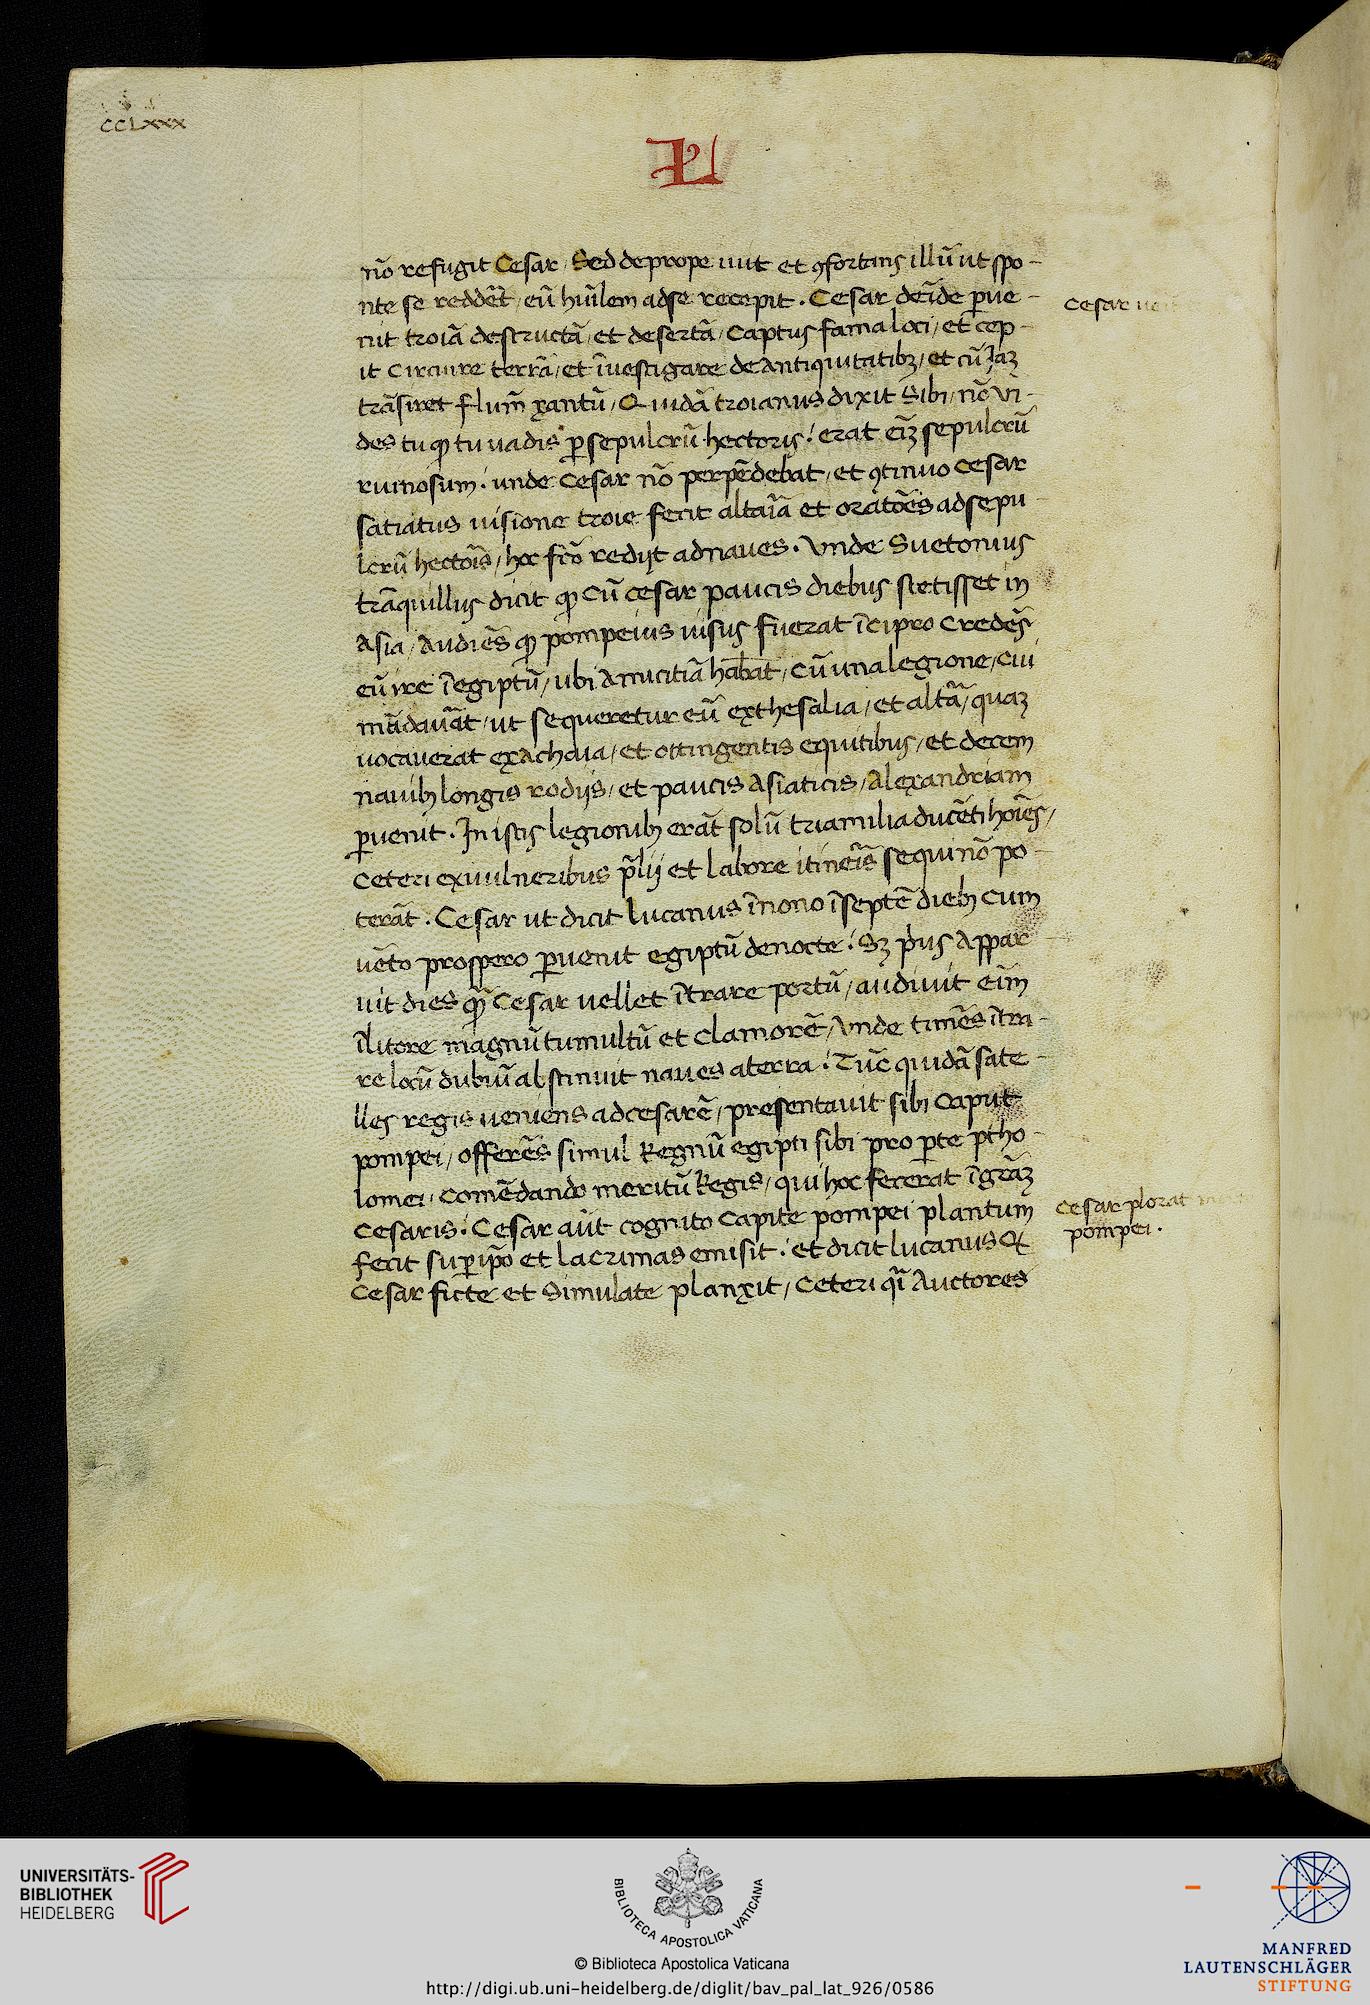 CCLXXX
L
nō refugit Cesar / Sed de prope iuit et ꝯfortans illū ut spo-
nte se reddēt / eū hūilem ad se recepit . Cesar deīde ꝑue-
nit troiā destructā / et desertā / Captus fama loci / et cep-
Cesar
it Circuire terrā / et īuestigare de Antiquitatibꝫ / et cū Iaꝫ
trāsiret flum̄ xantū / Quidā troianus dixit Sibi / nō Vi-
des tu ꝙ tu uadis ꝑ sepulcrū hectoris / erat eīꝫ sepulcrū
ruinosum . unde Cesar nō perpēdebat / et ꝯtinuo Cesar
satiatus uisione troie fecit altaīa et oratōes ad sepu
lcrū hectoīs / hoc fc̄o redijt ad naues . Vnde Suetonius
trāquillus dicit ꝙ Cū Cesar paucis diebus stetisset in
Asia / Audiēs ꝙ pompeius uisus fuerat ī cipro Credēs
eū ire ī egiptū / ubi Amicitiā habāt / Cū una legione / Cui
mādauāt / ut sequeretur eū ex thesalia / et altā / quaꝫ
uocauerat ex Achaia / et ottingentis equitibus / et decem
nauibꝫ longis rodijs / et paucis Asiaticis / Alexandriam
ꝑuenit . In istis legionibꝫ erāt solū tria milia ducēti hoīes /
Ceteri ex uulneribus p̄lij et labore itineīs sequi nō po-
terāt . Cesar ut dicit lucanus ī nono ī septē diebꝫ Cum
uēto prospero ꝑuenit egiptū de nocte . Sꝫ pius Appar
uit dies ꝙ̄ Cesar uellet ītrare portū / audiuit eīm
ī litore magnū tumultū et Clamorē / Vnde timēs ītra-
re locū dubiū abstinuit naues a terra . Tūc quidā sate-
lles regis ueniens ad cesarē / presentauit sibi Caput
pompei / offerēs simul Regnū egipti sibi pro ꝑte ptho-
lomei / Comēdando meritū Regis / qui hoc fecerat ī grāꝫ
Cesaris . Cesar aūt cognito Capite pompei plantum
Cesar plorat
pompei .
fecit suꝑ ip̄o et lacrimas emisit . et dicit lucanus Q̄
Cesar ficte et Simulate planxit / Ceteri qī Auctores
UNIVERSITÄTS-
BIBLIOTHEK
HEIDELBERG
BIBLIOTECA APOSTOLICA VATICANA
© Biblioteca Apostolica Vaticana
http://digi.ub.uni-heidelberg.de/diglit/bav_pal_lat_926/0586
MANFRED
LAUTENSCHLÄGER
STIFTUNG